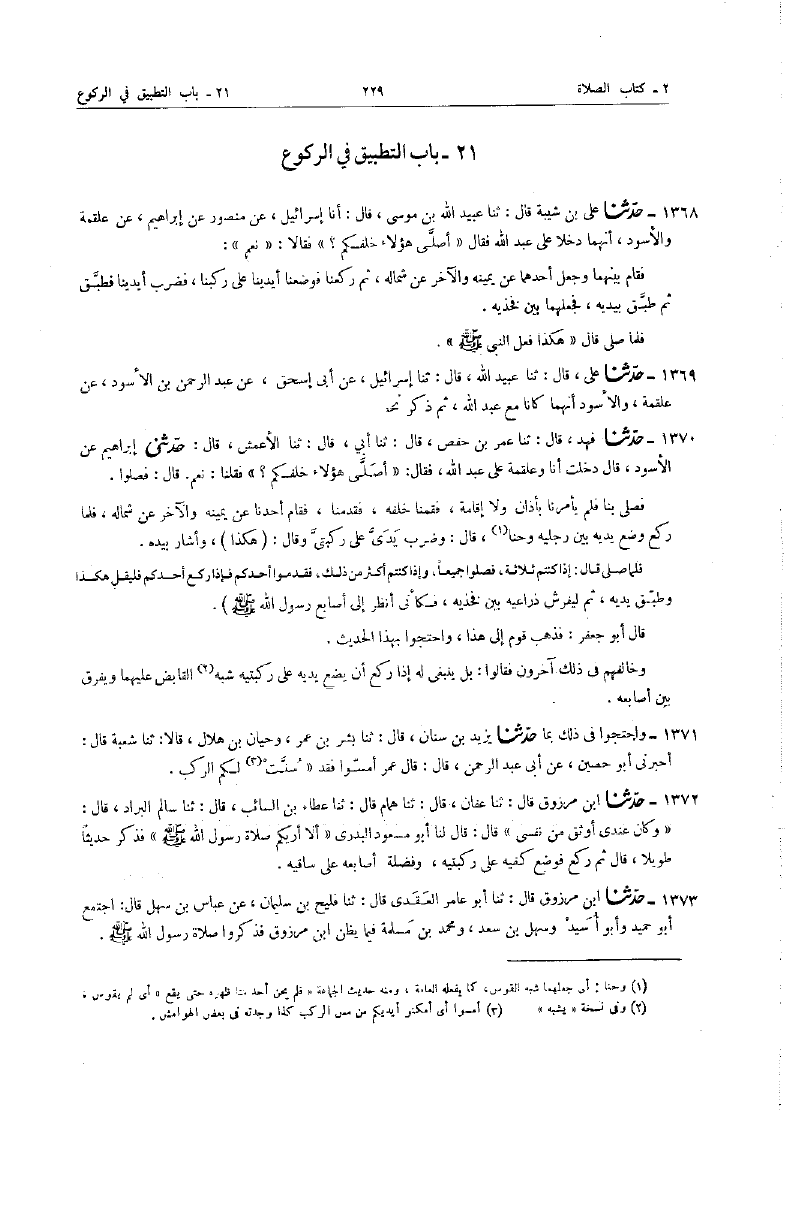 ٢ ـ كتاب الصلاة ٢٢٩ ٢١ ـ باب التطبيق في الركوع
٢١ ـ باب التطبيق في الركوع
١٣٦٨ ـ حدّثنا على بن شيبة قال : ثنا عبيد الله بن موسى ، قال : أنا إسرائيل ، عن منصور عن إبراهيم ، عن علقمة
والأسود ، أنهما دخلا على عبد الله فقال « أصلَّى هؤلاء خلفكم ؟ » فقالا : « نعم » :
فقام بينهما وجعل أحدهما عن يمينه والآخر عن شماله ، ثم ركعنا فوضعنا أيدينا على ركبنا ، فضرب أيدينا فطبَّق
ثم طبَّق بيديه ، فجعلهما بين فخذيه .
فلما صلى قال « هكذا فعل النبى ﷺ » .
١٣٦٩ ـ حدّثنا على ، قال : ثنا عبيد الله ، قال : ثنا إسرائيل ، عن أبى إسحق ، عن عبد الرحمن بن الأسود ، عن
علقمة ، والأسود أنهما كانا مع عبد الله ، ثم ذكر نحـ
١٣٧٠ ـ حدّثنا فهد ، قال : ثنا عمر بن حفص ، قال : ثنا أبي ، قال : ثنا الأعمش ، قال : حدّثنى إبراهيم عن
الأسود ، قال دخلت أنا وعلقمة على عبد الله ، فقال: « أصَلَّى هؤلاء خلفكم ؟ » فقلنا : نعم. قال : فصلوا .
فصلى بنا فلم يأمرنا بأذان ولا إقامة ، فقمنا خلفه ، فقدمنا ، فقام أحدنا عن يمينه والآخر عن شماله ، فلما
ركع وضع يديه بين رجليه وحنا(١) ، قال : وضرب يَدَىَّ على ركبتيَّ وقال : ( هكذا ) ، وأشار بيده .
فلما صلى قال : إذا كنتم ثلاثة، فصلوا جميعاً، وإذا كنتم أكثر من ذلك، فقدموا أحدكم فإذا ركع أحدكم فليقل هكذا
وطبَّق يديه ، ثم ليفرش ذراعيه بين فخذيه ، فكأنى أنظر إلى أصابع رسول الله ﷺ ) .
قال أبو جعفر : فذهب قوم إلى هذا ، واحتجوا بهذا الحديث .
وخالفهم فى ذلك آخرون فقالوا : بل ينبغى له إذا ركع أن يضع يديه على ركبتيه شبه(٢) القابض عليهما ويفرق
بين أصابعه .
١٣٧١ ـ واحتجوا فى ذلك بما حدّثنا يزيد بن سنان ، قال : ثنا بشر بن عمر ، وحيان بن هلال ، قالا: ثنا شعبة قال :
أخبرنى أبو حصين ، عن أبى عبد الرحمن ، قال : قال عمر أمسّوا فقد « سُنَّت(٣) لكم الركب .
١٣٧٢ ـ حدّثنا ابن مرزوق قال : ثنا عفان ، قال : ثنا همام قال : ثنا عطاء بن السائب ، قال : ثنا سالم البراد ، قال :
« وكان عندى أوثق من نفسى » قال : قال لنا أبو مسعود البدرى « ألا أريكم صلاة رسول الله ﷺ » فذكر حديثاً
طويلا ، قال ثم ركع فوضع كفيه على ركبتيه ، وفضلة أصابعه على ساقيه .
١٣٧٣ ـ حدّثنا ابن مرزوق قال : ثنا أبو عامر العَقَدى قال : ثنا فليح بن سليمان ، عن عباس بن سهل قال: اجتمع
أبو حميد وأبو أُسَيد وسهل بن سعد ، ومحمد بن مَسلمة فيما يظن ابن مرزوق فذكروا صلاة رسول الله ﷺ .
(١) وحنا : أى جعلهما شبه القوس، كما يفعله العامة ، ومنه حديث الجماعة « فلم يحن أحد منا ظهره حتى يقع » أى لم يقوس .
(٢) وفى نسخة « يشبه » (٣) أمسوا أى أمكنوا أيديكم من مس الركب كذا وجدته فى بعض الهوامش .